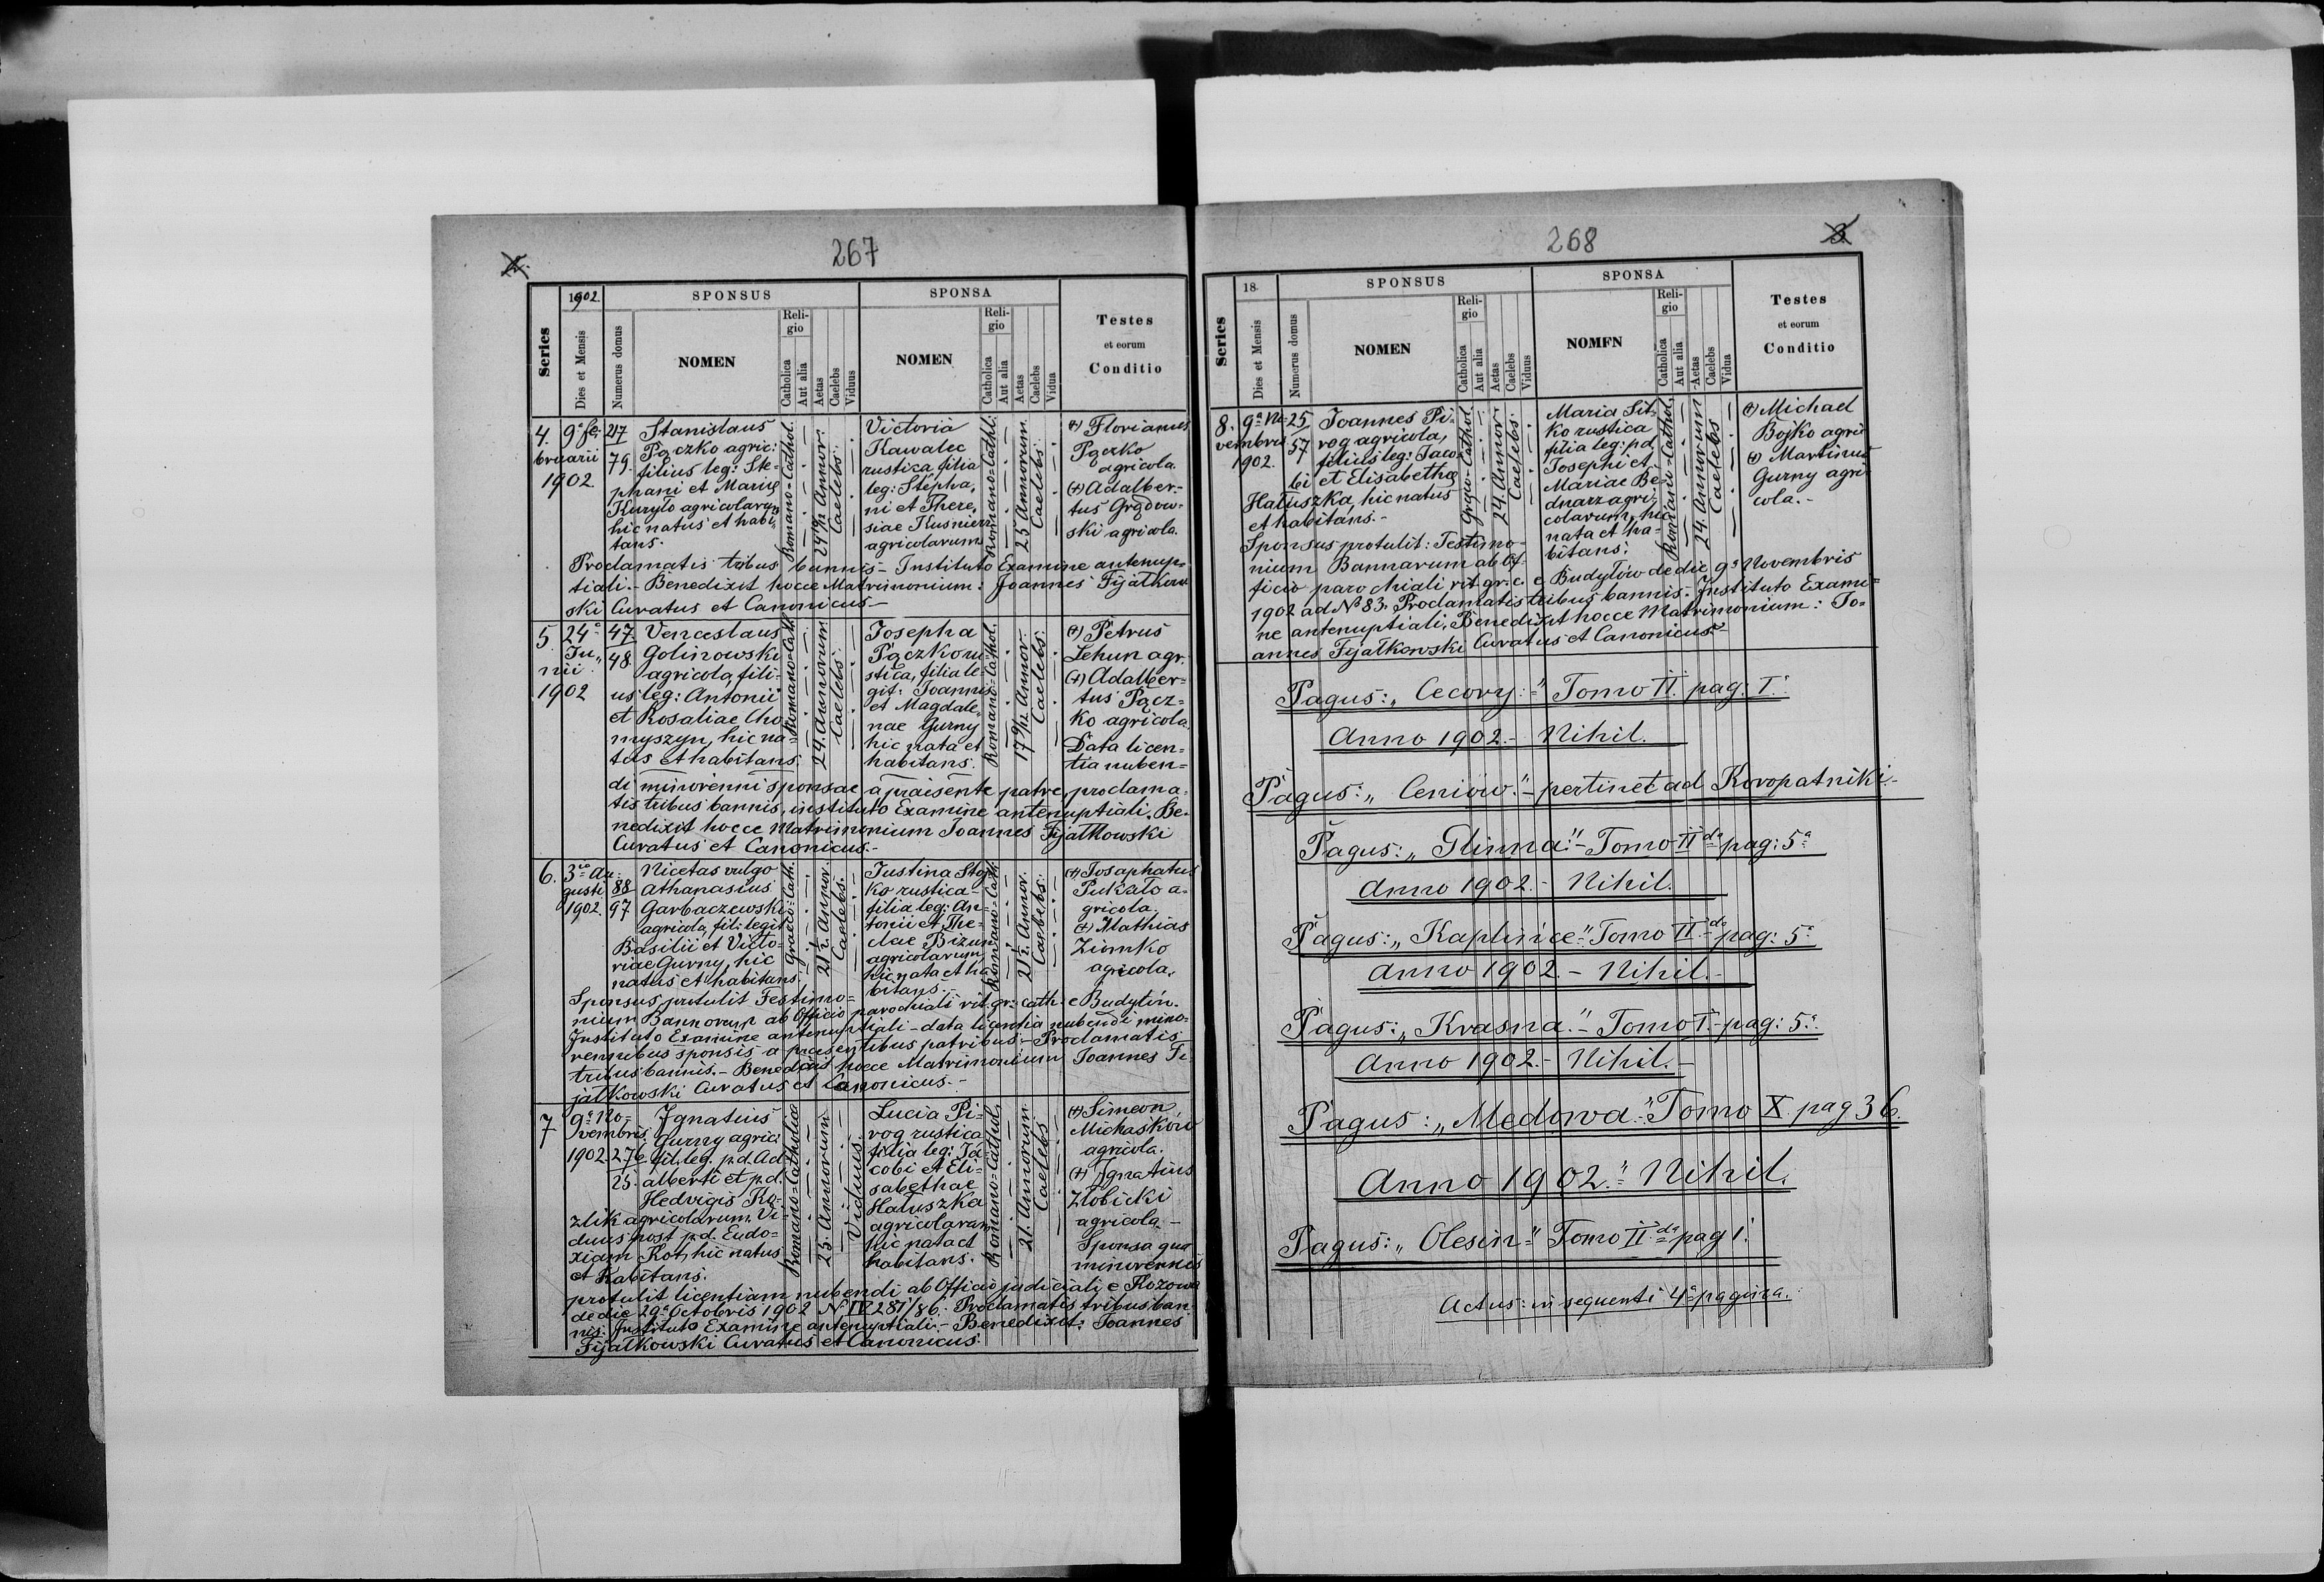 267
1902.
SPONSUS
SPONSA
Series
Dies et Mensis
Numerus domus
NOMEN
Religio
Catholica
Aut alia
Aetas
Caelebs
Viduus
NOMEN
Religio
Catholica
Aut alia
Aetas
Caelebs
Vidua
Testes
et eorum
Conditio
4.
9a fe-
bruarii
1902
217
79.
Stanislaus
Pączko agric:
filius leg: Ste-
phani et Mariae
Kuryło agricolarum
hic natus et habi-
tans.
Romano-Cathol.
Caelebs.
Victoria
Kawalec
rustica filia
leg: Stepha-
ni et There-
siae Kusnierz
agricolarum
Romano-Cathl.
25 Annorum
Caelebs.
(+) Florianus
Pączko
agricola.
(+) Adalber-
tus Grądow-
ski agricola.
Proclamatis tribus bannis - Instituto Examine antenup-
tiali. - Benedixit hocce Matrimonium: Joannes Fijałkow
ski Curatus et Canonicus -
5.
24a
Ju-
nii
1902
47
48
Venceslaus
Golinowski
agricola, fili-
us leg: Antonii
et Rosaliae Cho-
myszyn, hic na-
tus et habitans.
Romano-Cath.
24. Annorum
Caelebs.
Josepha
Pączko ru-
stica, filia le-
git: Joannis
et Magdale-
nae Gurny
hic nata et
habitans.
Romano-Cathol.
17 9/12 Annor.
Caelebs.
(+) Petrus
Lehun agr.
(+) Adalber-
tus Pącz-
ko agricola
Data licen-
tia nuben-
di minorenni sponsae a praesente patre, proclama-
tis tribus bannis, instituto Examine antenuptiali. Be-
nedixit hocce Matrimonium Joannes Fijałkowski
Curatus et Canonicus.-
6.
3ia Au-
gusti
1902.
88
97
Nicetas vulgo
Athanasius
Garbaczewski
agricola, fil: legit
Basilii et Victo-
riae Gurny, hic
natus et habitans.
Graeco-Cath.
21½ Annor.
Caelebs.
Justina Stoj
ko rustica -
filia leg: An-
tonii et The-
clae Bizun
agricolarum
hic nata et ha
bitans.-
Romano-Cath.
21½ Annor.
Caelebs.
(+) Josaphatus
Pukało a-
gricola.
(+) Mathias
Ziomko
agricola.
Sponsus protulit Testimo-
nium Bannorum ab Officio parochiali rit. gr: cath. e Budyłów.
Instituto Examine antenuptiali - data licentia nubendi mino-
rennibus sponsis a praesentibus patribus - Proclamatis
tribus bannis. - Benedixit hocce Matrimonium Joannes Fi
jałkowski Curatus et Canonicus. -
7
9a No-
vembris
1902
276
25.
Ignatius
Gurny agric:
fil. leg. p.d. Ad
alberti et p.d.
Hedvigis Ko-
zlik agricolarum. Vi-
duus post p.d. Eudo-
xiam Kot, hic natus
et habitans.
Romano-Catholica
25. Annorum
Viduus.
Lucia Pi-
rog rustica
filia leg: Ja
cobi et Eli-
sabethae
Hałuszka
agricolarum
hic nata et
habitans.
Romano-Cathol.
21. Annorum
Caelebs
(+) Simeon
Michaśkow
agricola.
(+) Ignatius
Złobicki
agricola. -
Sponsa qua
minorennis
protulit licentiam nubendi ab Officio judiciali e Kozowa
de die 29a Octobris 1902 N IV 281/86. Proclamatis tribus ban-
nis. Instituto Examine antenuptiali. - Benedixit: Joannes
Fijałkowski Curatus et Canonicus.
268
3
18
SPONSUS
SPONSA
Series
Dies et Mensis
Numerus domus
NOMEN
Religio
Catholica
Aut alia
Aetas
Caelebs
Viduus
NOMEN
Religio
Catholica
Aut alia
Aetas
Caelebs
Vidua
Testes
et eorum
Conditio
8.
9a No-
vembris
1902.
25
57
Joannes Pi-
rog agricola,
filius leg: Jaco-
bi et Elisabethae
Hałuszka, hic natus
et habitans. -
Graeo-Cathol.
24. Annor.
Caelebs.
Maria Sit-
ko rustica
filia leg: p.d.
Josephi et
Mariae Be-
dnarz agri-
colarum, hic
nata et ha-
bitans.
Romano-Cathol.
24. Annorum
Caelebs
(+) Michael
Bojko agri-
(+) Martinus
Gurny agri
cola. -
Sponsus protulit: Testimo-
nium Bannarum ab Of-
ficio parochiali rit. gr. c. e Budyłów de die 9a Novembris
1902 ad No 83. Proclamatis tribus bannis. Instituto Exami-
ne antenuptiali. Benedixit hocce Matrimonium: Jo-
annes Fijałkowski Curatus et Canonicus. -
Pagus: „Cecory." Tomo II. pag: I.
Anno 1902. - Nihil.
Pagus: „Ceniów." - pertinet ad Koropatniki. -
Pagus: „Glinna." - Tomo IIda pag: 5a
Anno 1902. - Nihil.
Pagus: „Kaplińce" Tomo IIda pag: 5a
Anno 1902 - Nihil. -
Pagus: „Krasna." - Tomo I. - pag: 5a.
Anno 1902. - Nihil. -
Pagus: „Medowa." Tomo X. pag 36.
Anno 1902. Nihil.
Pagus: „Olesin" Tomo IIda pag 1.
Actus: in sequenti 4a pagina.